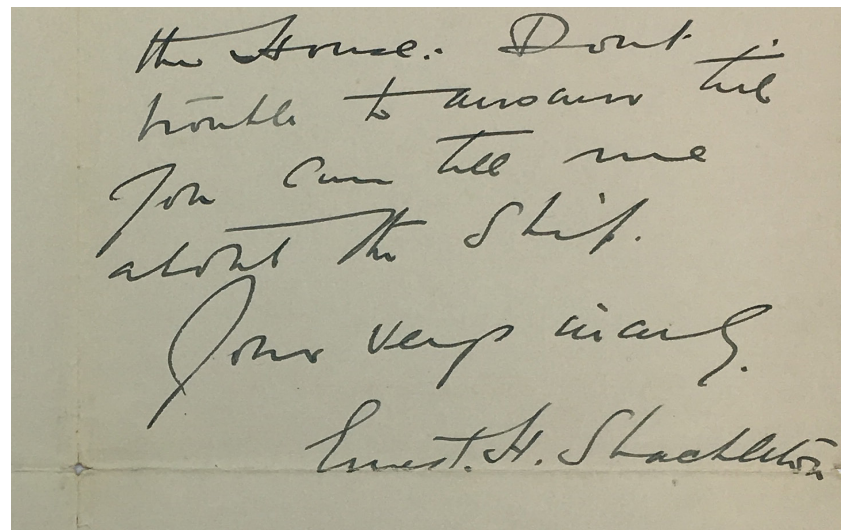 the House. Dont
trouble to answer till
you can tell me
about the Ship.
Yours very
Ernest. H. Shackleton